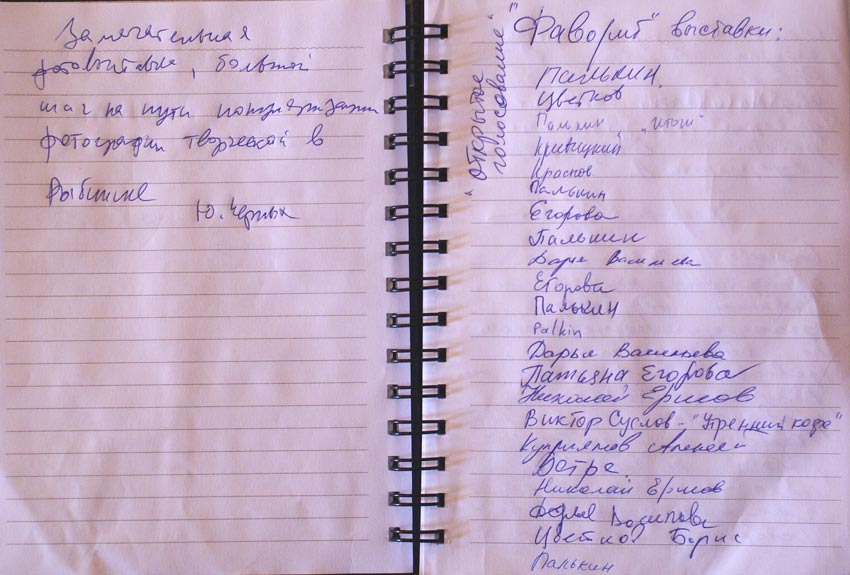 Замечательная
фотовыставка, большой
шаг на пути популяризации
фотографии творческой в
Рыбинске
Ю. Черных
"Фаворит" выставки:
"открытое
голосование"
Палькин.
Цветков
Палькин "Итог"
Кривицкий
Краснов
Палькин
Егорова
Палькин
Дарья Васильева
Егорова
Палькин
Palkin
Дарья Васильева
Татьяна Егорова
Николай Ершов
Виктор Суслов - "Утренний кофе"
Куприянов Алексей
Николай Ершов
Цветков Борис
Палькин